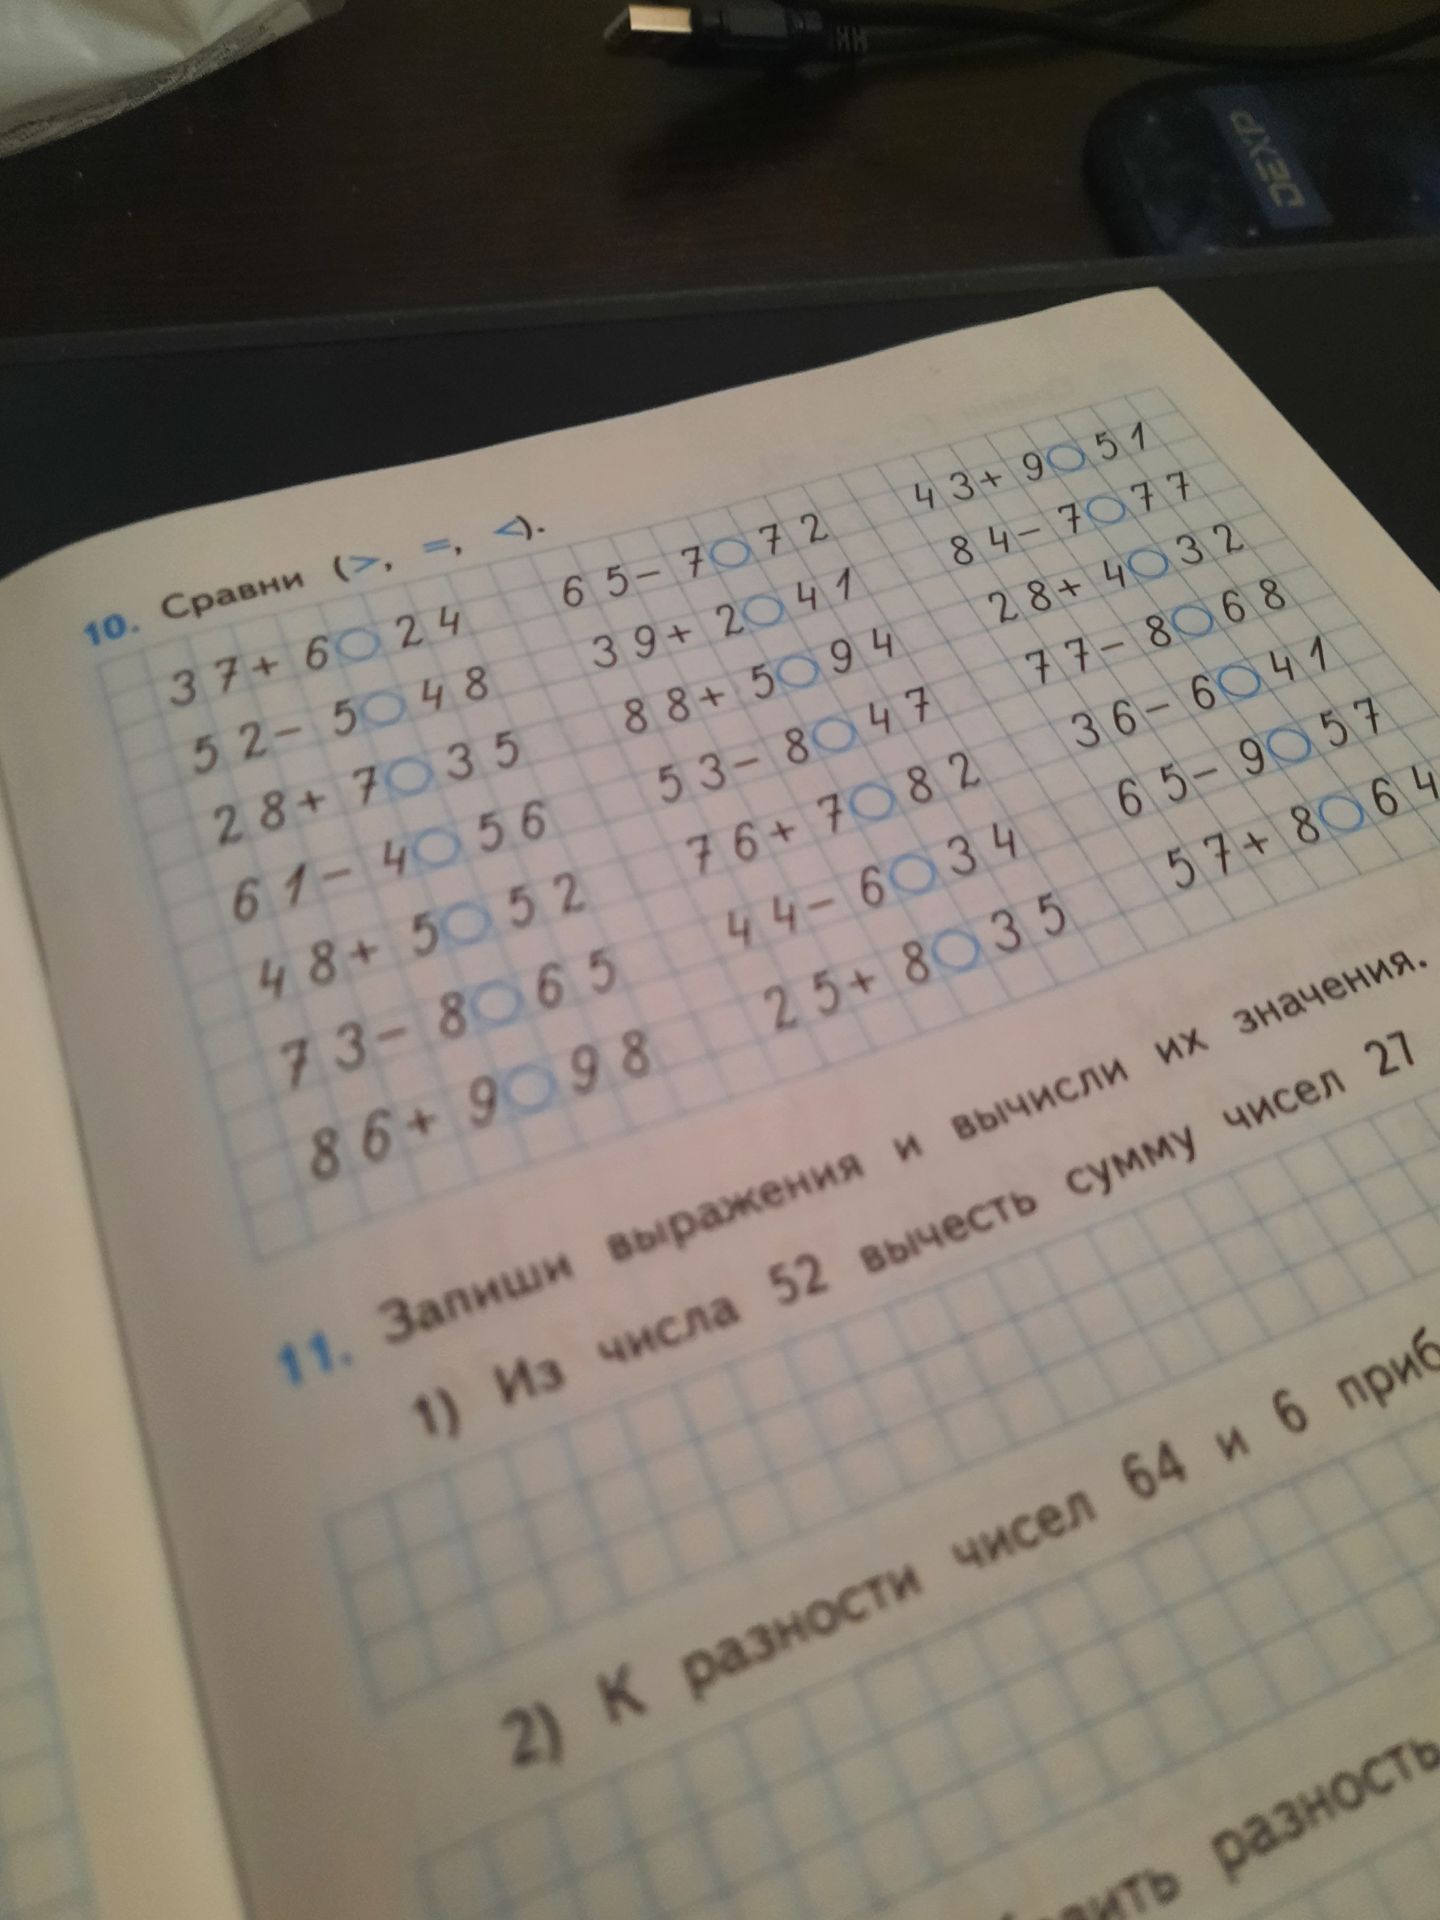 DEXP
10. Сравни (>, =, <).
37+ 6○24 65- 7○72 43+ 9○51
52- 5○48 39+ 2○41 84- 7○77
28+ 7○35 88+ 5○94 28+ 4○32
61- 4○56 53- 8○47 77- 8○68
48+ 5○52 76+ 7○82 36- 6○41
73- 8○65 44- 6○34 65- 9○57
86+ 9○98 25+ 8○35 57+ 8○64
11. Запиши выражения и вычисли их значения.
1) Из числа 52 вычесть сумму чисел 27
2) К разности чисел 64 и 6 приб
разность